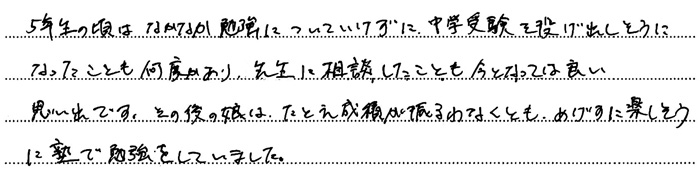 5年生の頃はなかなか勉強についていけずに、中学受験を投げ出しそうに
なったことも何度かあり、先生に相談したことも今となっては良い
思い出です。その後の娘は、たとえ成績が振るわなくとも、めげずに楽しそう
に塾で勉強をしていました。